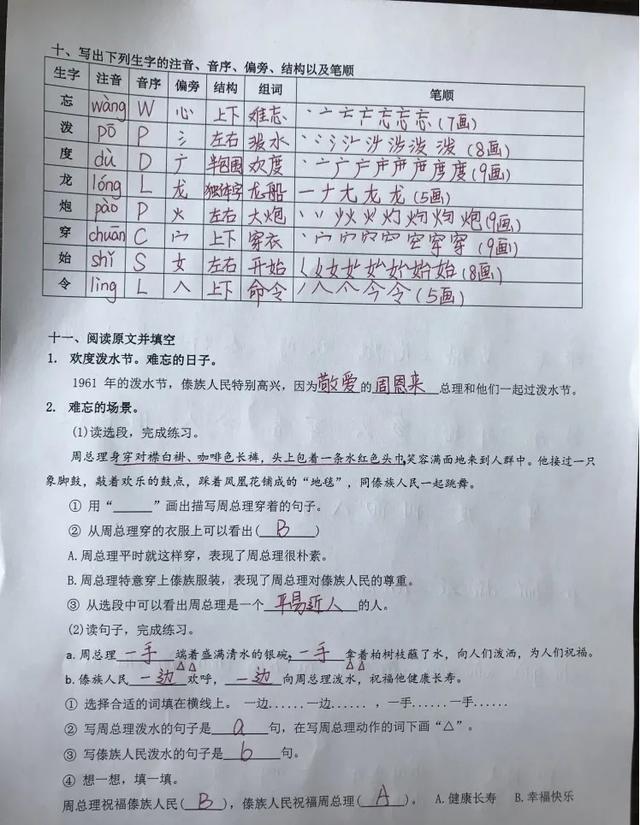 十、写出下列生字的注音、音序、偏旁、结构以及笔顺
生字 注音 音序 偏旁 结构 组词 笔顺
忘 wàng W 心 上下 难忘 丶亠亡产忘忘忘(7画)
泼 pō P 氵 左右 泼水 (8画)
度 dù D 广 半包围 欢度 (9画)
龙 lóng L 龙 独体字 龙船 一ナ尢龙龙(5画)
炮 pào P 火 左右 大炮 (9画)
穿 chuān C 上下 穿衣 (9画)
始 shǐ S 女 左右 开始 (8画)
令 lìng L 人 上下 命令 丿人亼今令(5画)
十一、阅读原文并填空
1. 欢度泼水节。难忘的日子。
1961 年的泼水节，傣族人民特别高兴，因为敬爱的周恩来总理和他们一起过泼水节。
2. 难忘的场景。
(1)读选段，完成练习。
周总理身穿对襟白褂、咖啡色长裤，头上包着一条水红色头巾，笑容满面地来到人群中。他接过一只
象脚鼓，敲着欢乐的鼓点，踩着凤凰花铺成的“地毯”，同傣族人民一起跳舞。
① 用“______”画出描写周总理穿着的句子。
② 从周总理穿的衣服上可以看出( B )
A.周总理平时就这样穿，表现了周总理很朴素。
B.周总理特意穿上傣族服装，表现了周总理对傣族人民的尊重。
③ 从选段中可以看出周总理是一个 平易近人 的人。
(2)读句子，完成练习。
a.周总理 一手 端着盛满清水的银碗，一手 拿着柏树枝蘸了水，向人们泼洒，为人们祝福。
△△ △△
b.傣族人民 一边 欢呼，一边 向周总理泼水，祝福他健康长寿。
① 选择合适的词填在横线上。 一边......一边...... ，一手......一手......
② 写周总理泼水的句子是 a 句，在写周总理动作的词下画“△”。
③ 写傣族人民泼水的句子是 b 句。
④ 想一想，填一填。
周总理祝福傣族人民( B )，傣族人民祝福周总理( A )。 A.健康长寿 B.幸福快乐